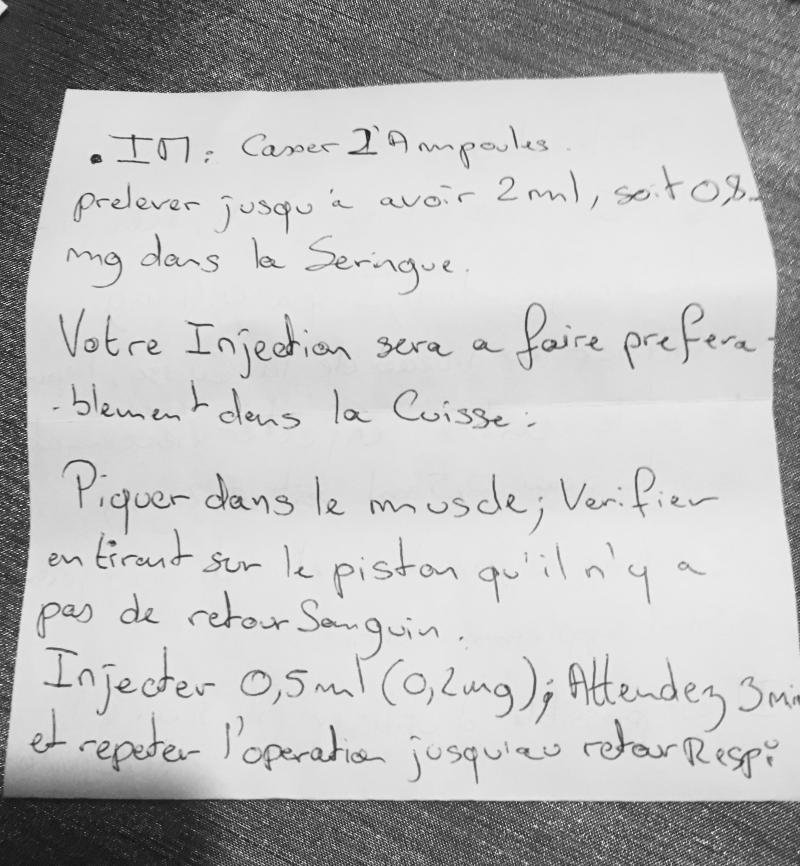 . IM : Casser 2 Ampoules.
prelever jusqu'a avoir 2 ml, soit 0,8
mg dans la Seringue.
Votre Injection sera a faire prefera-
-blement dans la Cuisse :
Piquer dans le muscle ; Verifier
en tirant sur le piston qu'il n'y a
pas de retour Sanguin.
Injecter 0,5 ml (0,2 mg) ; Attendez 3 min
et repeter l'operation jusqu'au retour Respi